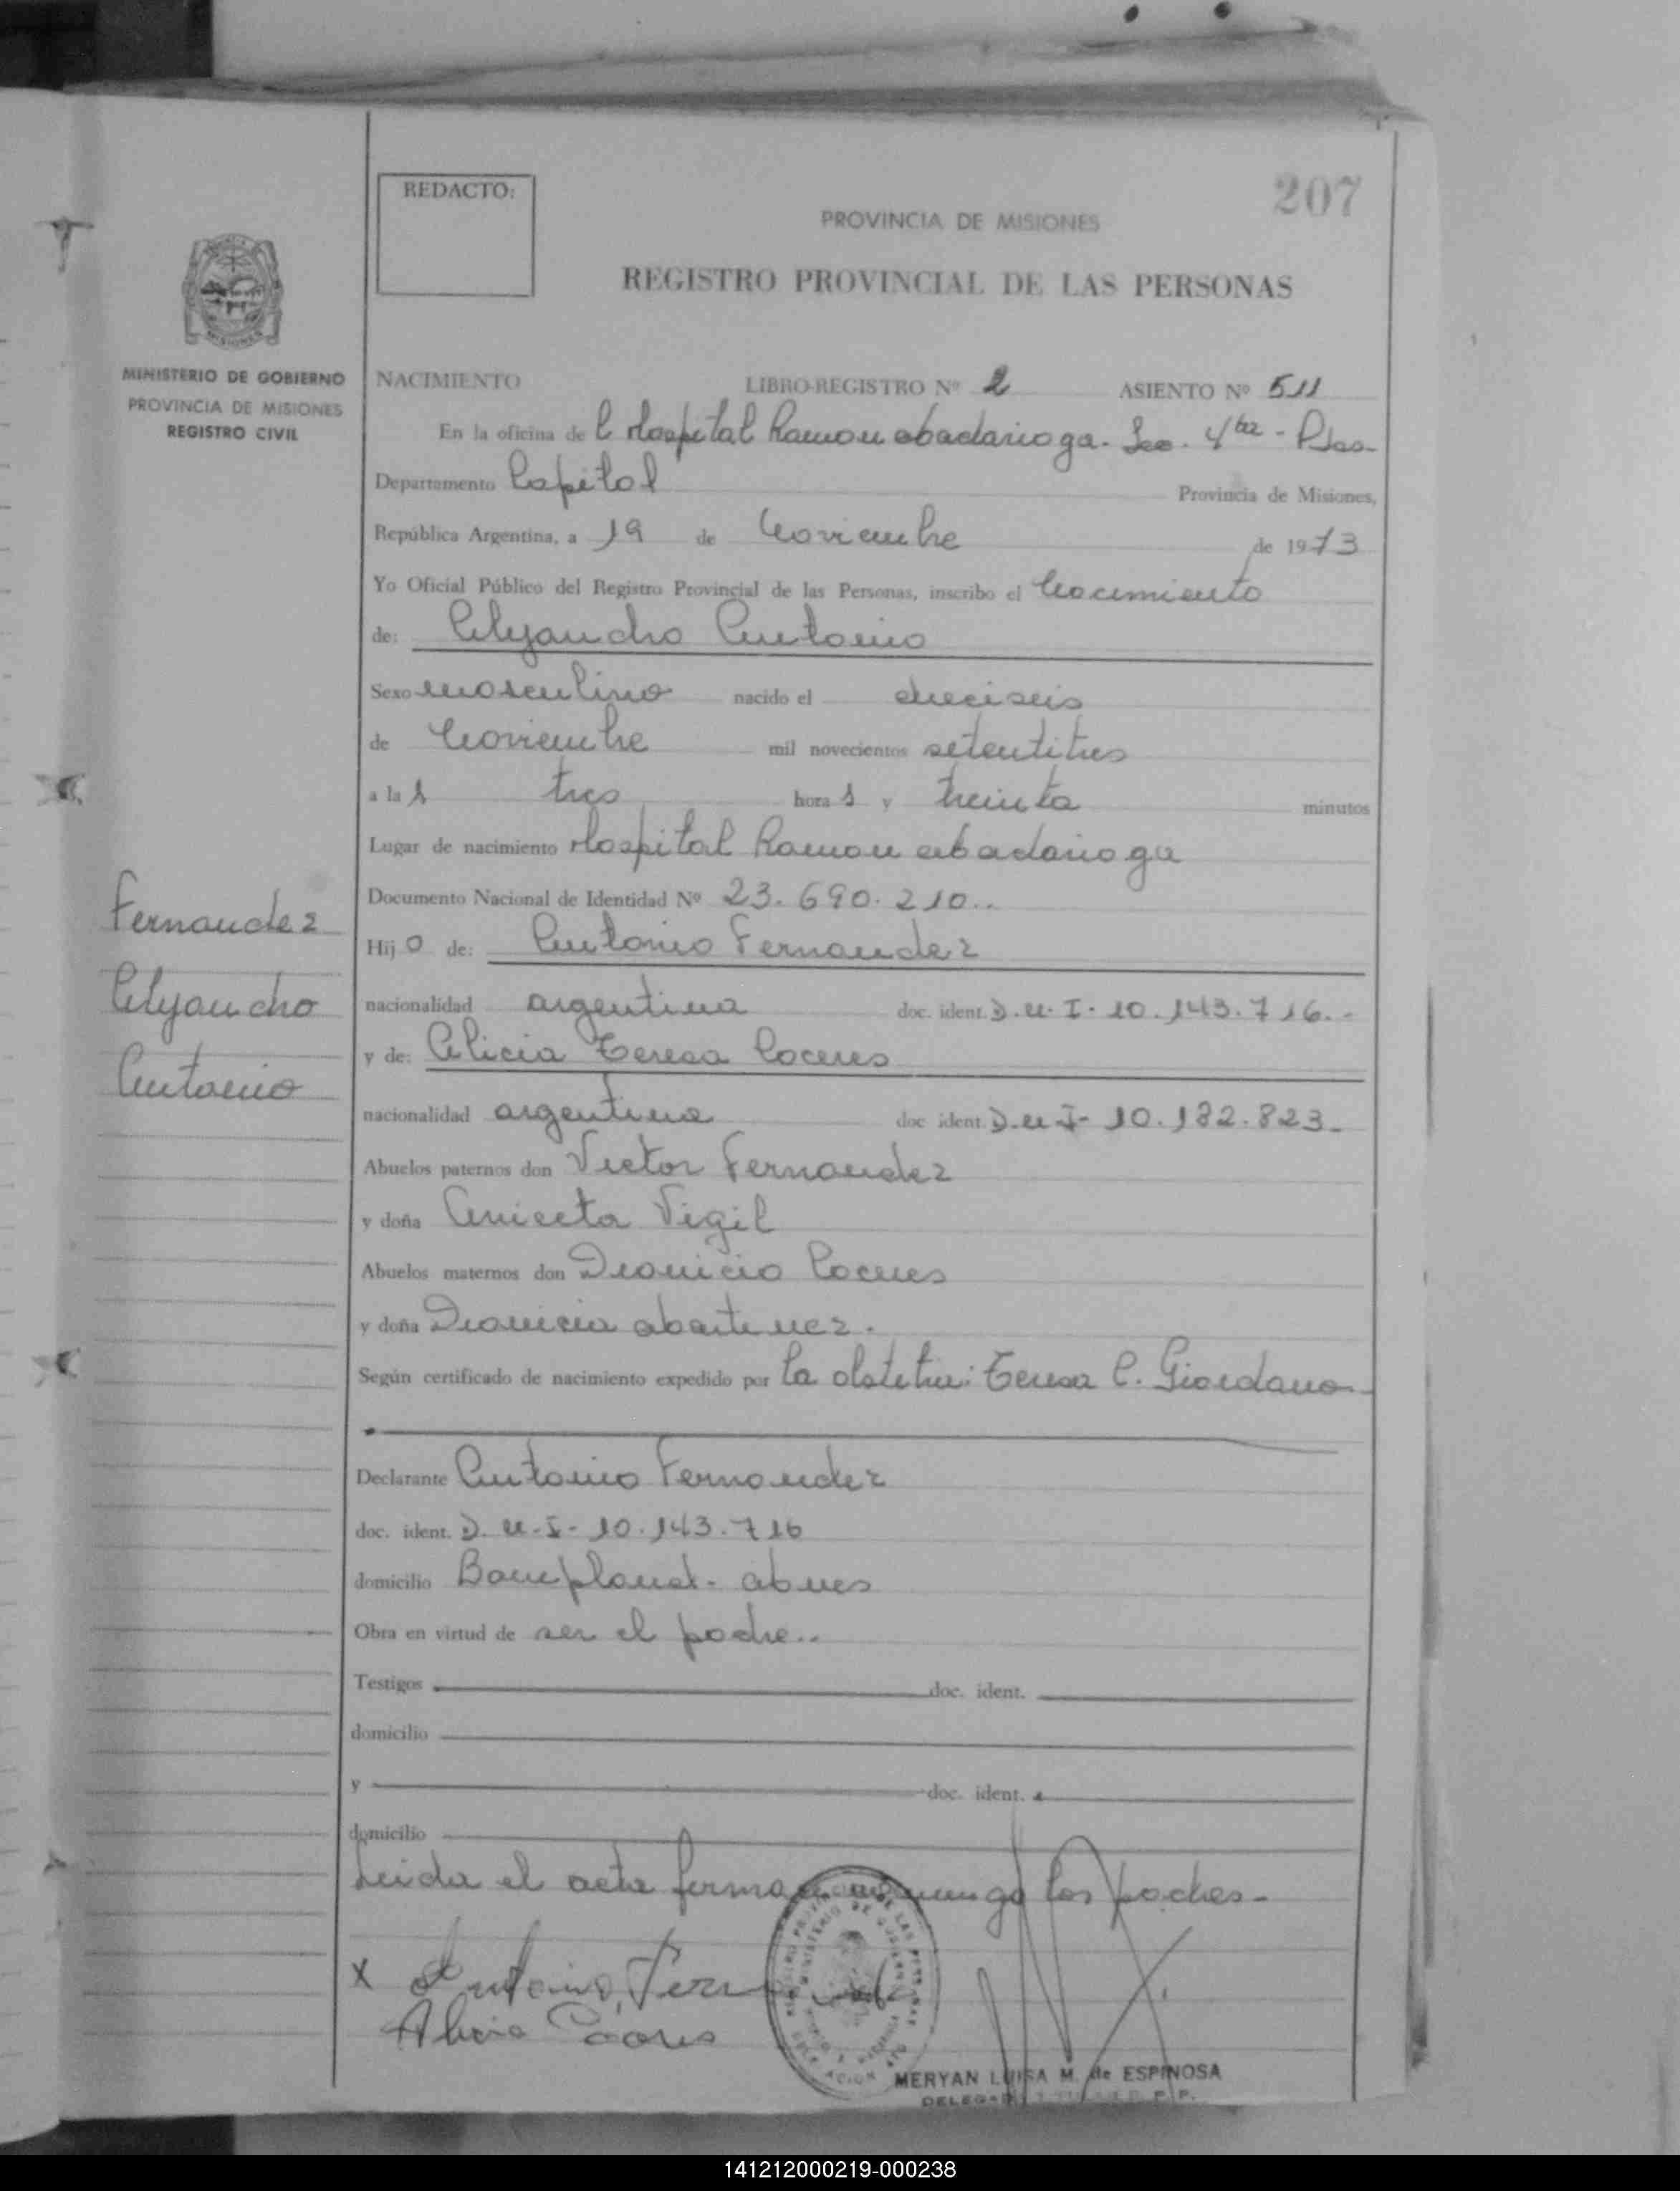 207
REDACTO:
PROVINCIA DE MISIONES
REGISTRO PROVINCIAL DE LAS PERSONAS
MINISTERIO DE GOBIERNO
PROVINCIA DE MISIONES
REGISTRO CIVIL
NACIMIENTO LIBRO-REGISTRO Nº 2 ASIENTO Nº 511
En la oficina de l Hospital Ramon Madariaga. Sec. 4ta - Pdas-
Departamento Capital Provincia de Misiones,
República Argentina, a 19 de Noviembre de 1973
Yo Oficial Público del Registro Provincial de las Personas, inscribo el Nacimiento
de: Alejandro Antonio
Sexo masculino nacido el dieciseis
de Noviembre mil novecientos setentitres
a la s tres hora s y treinta minutos
Lugar de nacimiento Hospital Ramon Madariaga
Documento Nacional de Identidad Nº 23.690.210..
Hij o de: Antonio Fernandez
nacionalidad argentina doc. ident. D.N.I. 10.143.716.-
y de: Alicia Teresa Caceres
nacionalidad argentina doc ident. D.N.I- 10.182.823.-
Abuelos paternos don Victor Fernandez
y doña Aniceta Vigil
Abuelos maternos don Dionicio Caceres
y doña Dionicia Martinez.
Según certificado de nacimiento expedido por la obstetri: Teresa C. Giordano-
Declarante Antonio Fernandez
doc. ident. D.N.I- 10.143.716
domicilio Bompland- Mnes
Obra en virtud de ser el padre..
Testigos doc. ident.
domicilio
y doc. ident.
domicilio
Leida el acta firman conmigo los padres-
x Antonio Fernandez
Alicia Caceres
MERYAN LUISA M. de ESPINOSA
Fernandez
Alejandro
Antonio
141212000219-000238